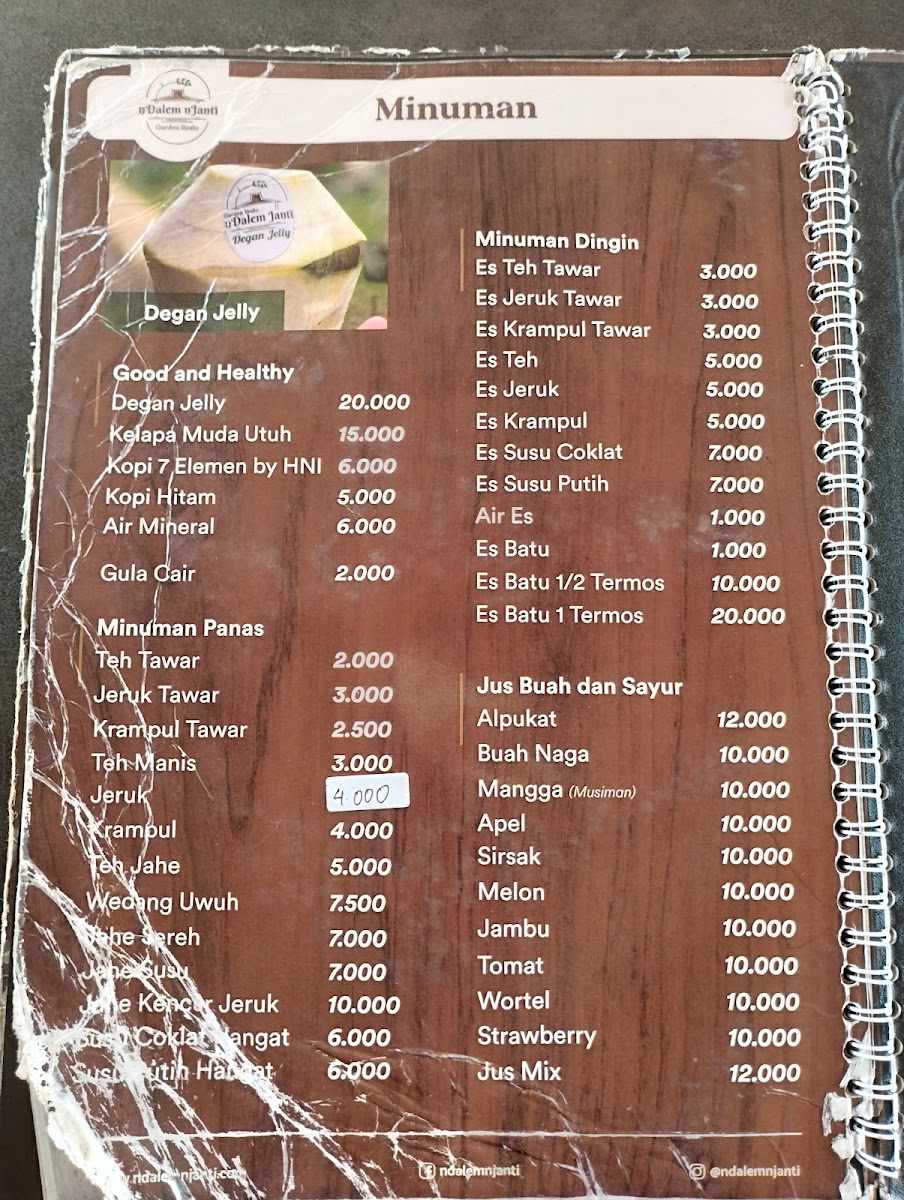 n'Dalem n'Janti
Garden Resto
Minuman
Garden Resto
n'Dalem Janti
Degan Jelly
Degan Jelly
Good and Healthy
Degan Jelly 20.000
Kelapa Muda Utuh 15.000
Kopi 7 Elemen by HNI 6.000
Kopi Hitam 5.000
Air Mineral 6.000
Gula Cair 2.000
Minuman Panas
Teh Tawar 2.000
Jeruk Tawar 3.000
Krampul Tawar 2.500
Teh Manis 3.000
Jeruk 4.000
Krampul 4.000
Teh Jahe 5.000
Wedang Uwuh 7.500
Jahe Sereh 7.000
Jahe Susu 7.000
Jahe Kencur Jeruk 10.000
Susu Coklat Hangat 6.000
Susu Putih Hangat 6.000
Minuman Dingin
Es Teh Tawar 3.000
Es Jeruk Tawar 3.000
Es Krampul Tawar 3.000
Es Teh 5.000
Es Jeruk 5.000
Es Krampul 5.000
Es Susu Coklat 7.000
Es Susu Putih 7.000
Air Es 1.000
Es Batu 1.000
Es Batu 1/2 Termos 10.000
Es Batu 1 Termos 20.000
Jus Buah dan Sayur
Alpukat 12.000
Buah Naga 10.000
Mangga (Musiman) 10.000
Apel 10.000
Sirsak 10.000
Melon 10.000
Jambu 10.000
Tomat 10.000
Wortel 10.000
Strawberry 10.000
Jus Mix 12.000
ndalemnjanti
@ndalemnjanti